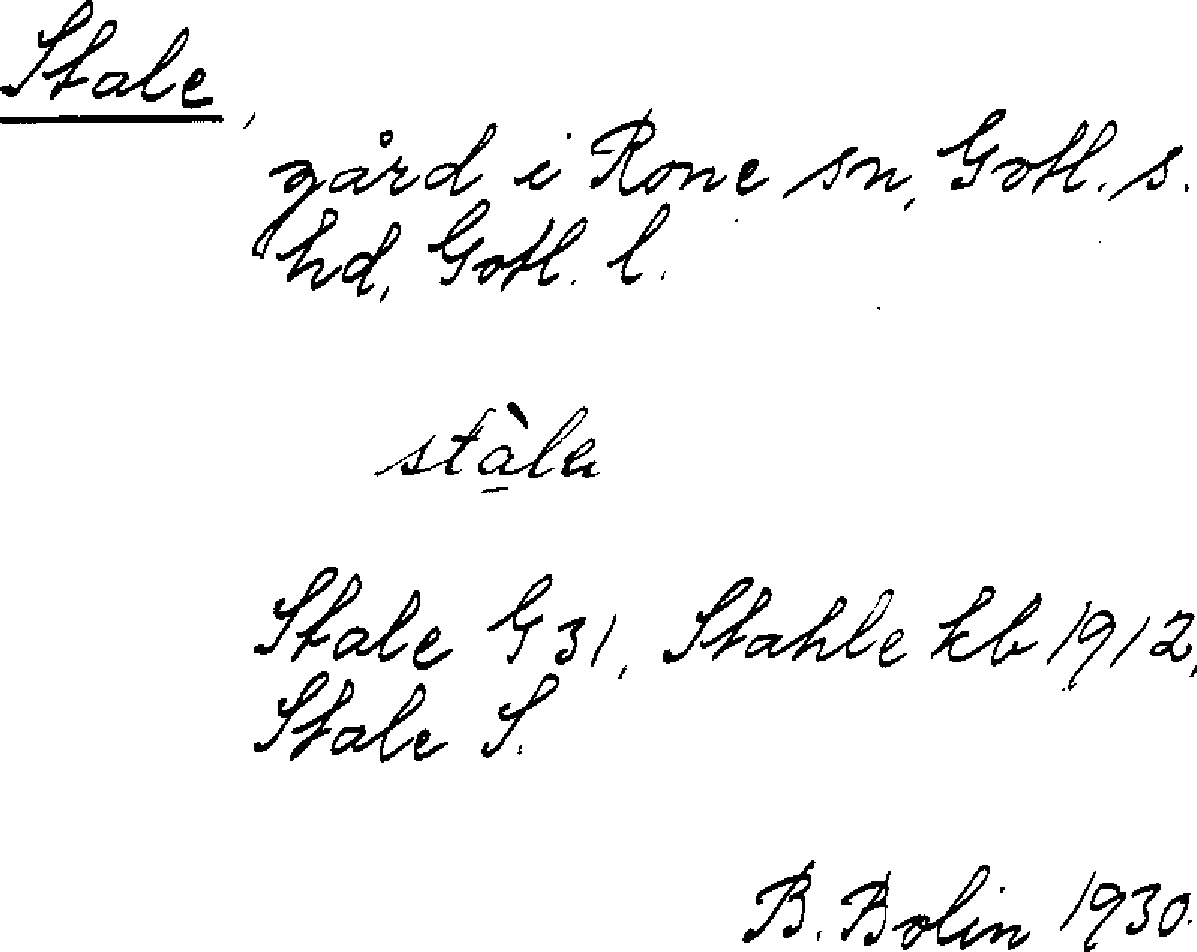 Stale,
gård i Rone sn, Gotl. s.
hd, Gotl. l.
stà̠la
Stale G 31, Stahle kb 1912,
Stale S.
B. Bolin 1930.